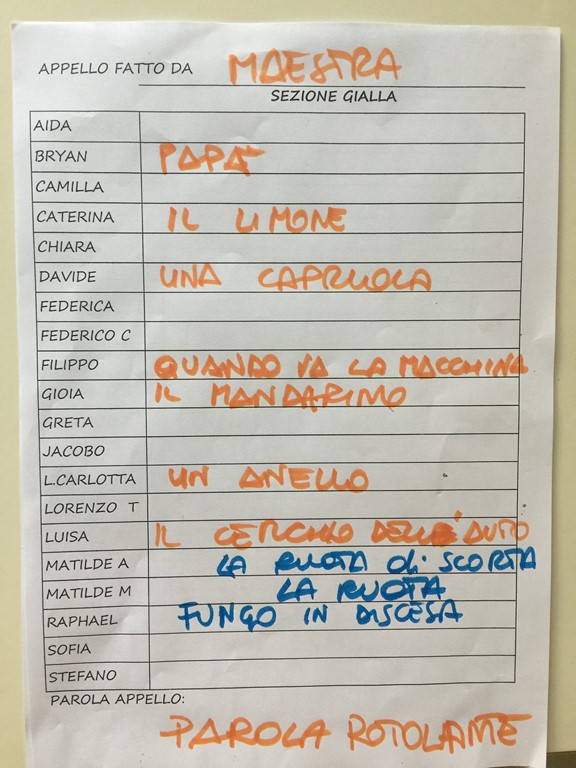 APPELLO FATTO DA MAESTRA
SEZIONE GIALLA
AIDA
BRYAN PAPÀ
CAMILLA
CATERINA IL LIMONE
CHIARA
DAVIDE UNA CAPRUOLA
FEDERICA
FEDERICO C
FILIPPO QUANDO VA LA MACCHINA
GIOIA IL MANDARINO
GRETA
JACOBO
L.CARLOTTA UN ANELLO
LORENZO T
LUISA IL CERCHIO DELL'AUTO
MATILDE A LA RUOTA di SCORTA
MATILDE M LA RUOTA
RAPHAEL FUNGO IN DISCESA
SOFIA
STEFANO
PAROLA APPELLO:
PAROLA ROTOLANTE